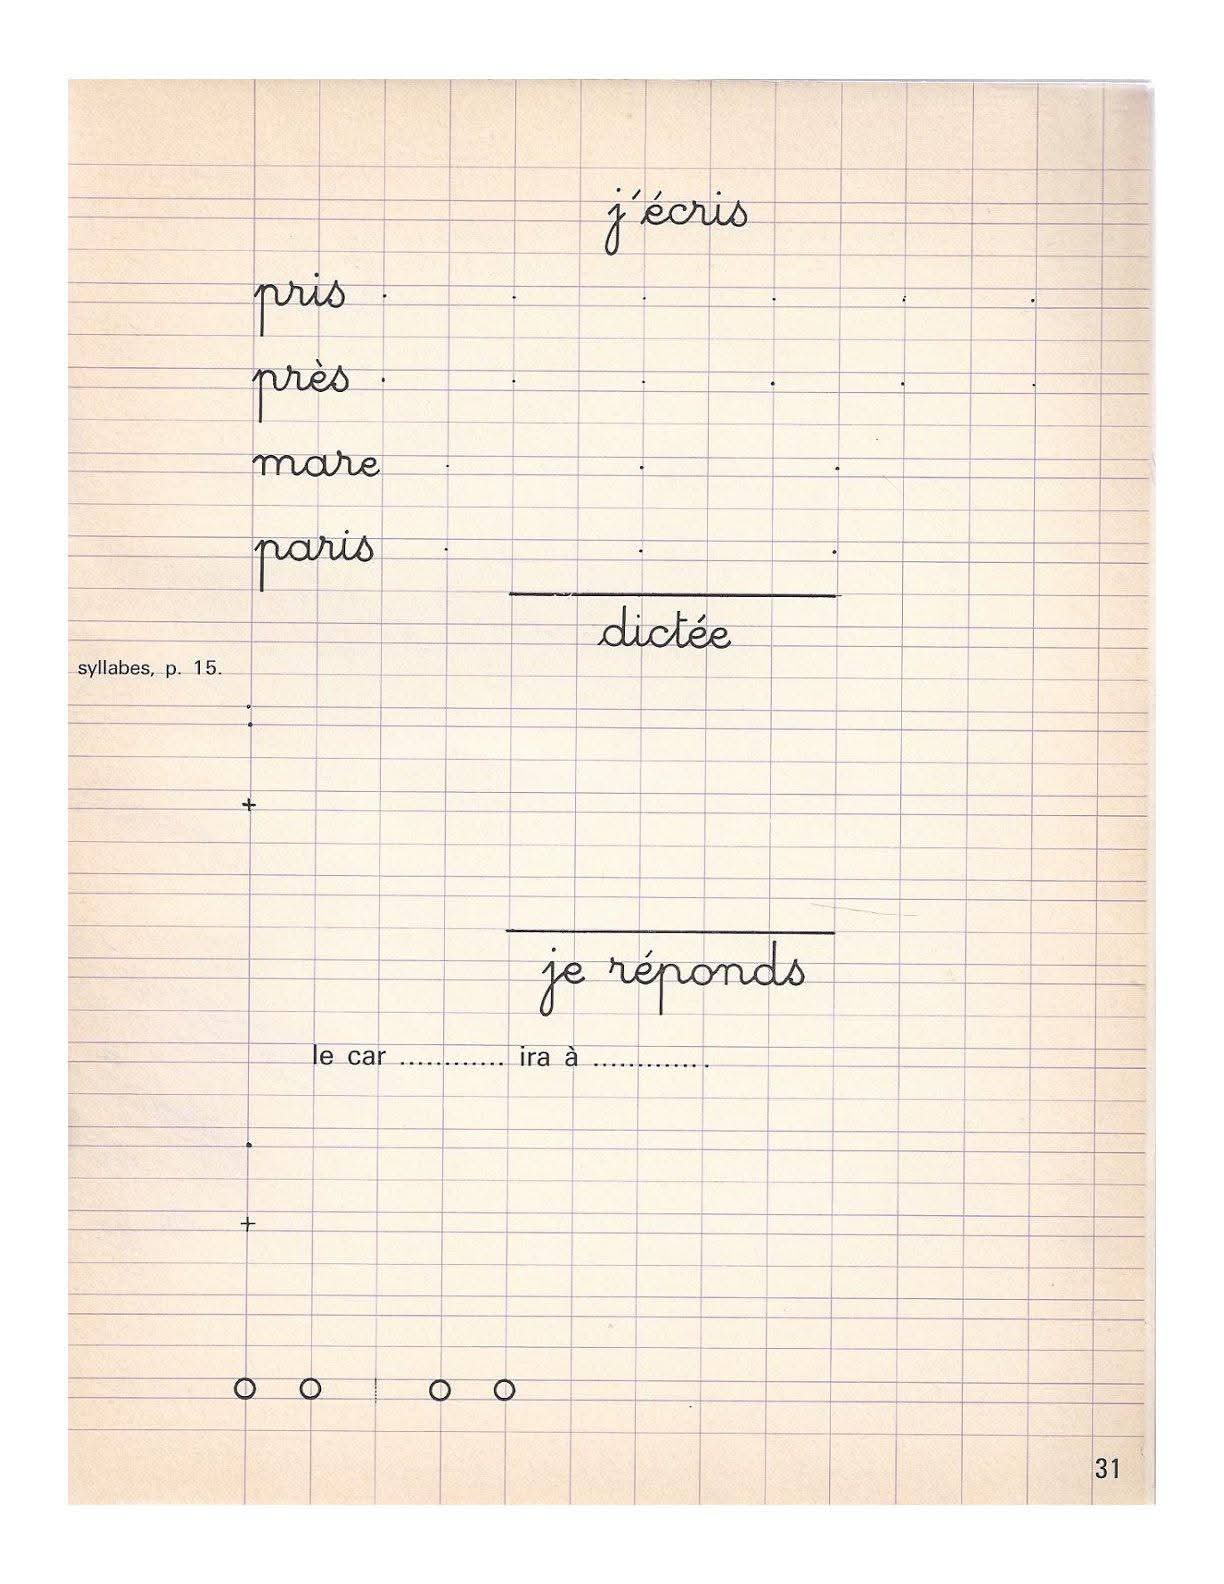 j'écris
pris
près
mare
paris
dictée
syllabes, p. 15.
je réponds
le car ............ ira à .............
31